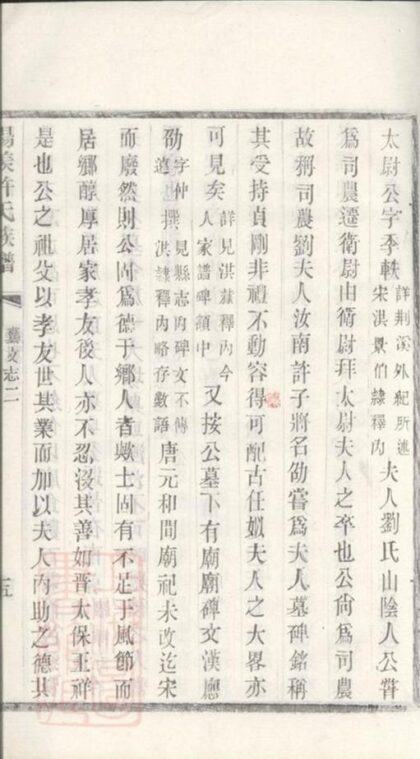 太尉公字季軼詳荆溪外紀所述宋洪景伯隸釋内夫人劉氏山陰人公嘗
爲司農遷衛尉由衛尉拜太尉夫人之卒也公尙爲司農
故稱司農劉夫人汝南許子將名劭嘗爲夫人墓碑銘稱
其受持貞剛非禮不動容德可配古任姒夫人之大畧亦
可見矣詳見洪隸釋内今人家譜碑類中又按公墓下有廟廟碑文漢應
劭字仲遠也撰見縣志内碑文不傳洪隸釋内略存數語唐元和間廟祀未改迄宋
而廢然則公固爲德于鄉人者歟士固有不足于風節而
居鄉醇厚居家孝友後人亦不忍沒其善如晋太保王祥
是也公之祖父以孝友世其業而加以夫人内助之德其
陽羨許氏族譜
藝文志二
五